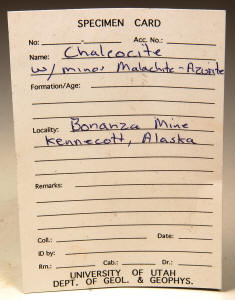 SPECIMEN CARD
No: Acc. No.:
Name: Chalcocite
w/ minor Malachite-Azurite
Formation/Age:
Locality: Bonanza Mine
Kennecott, Alaska
Remarks:
Coll.: Date:
ID by:
Rm.: Cab.: Dr.:
UNIVERSITY OF UTAH
DEPT. OF GEOL. & GEOPHYS.